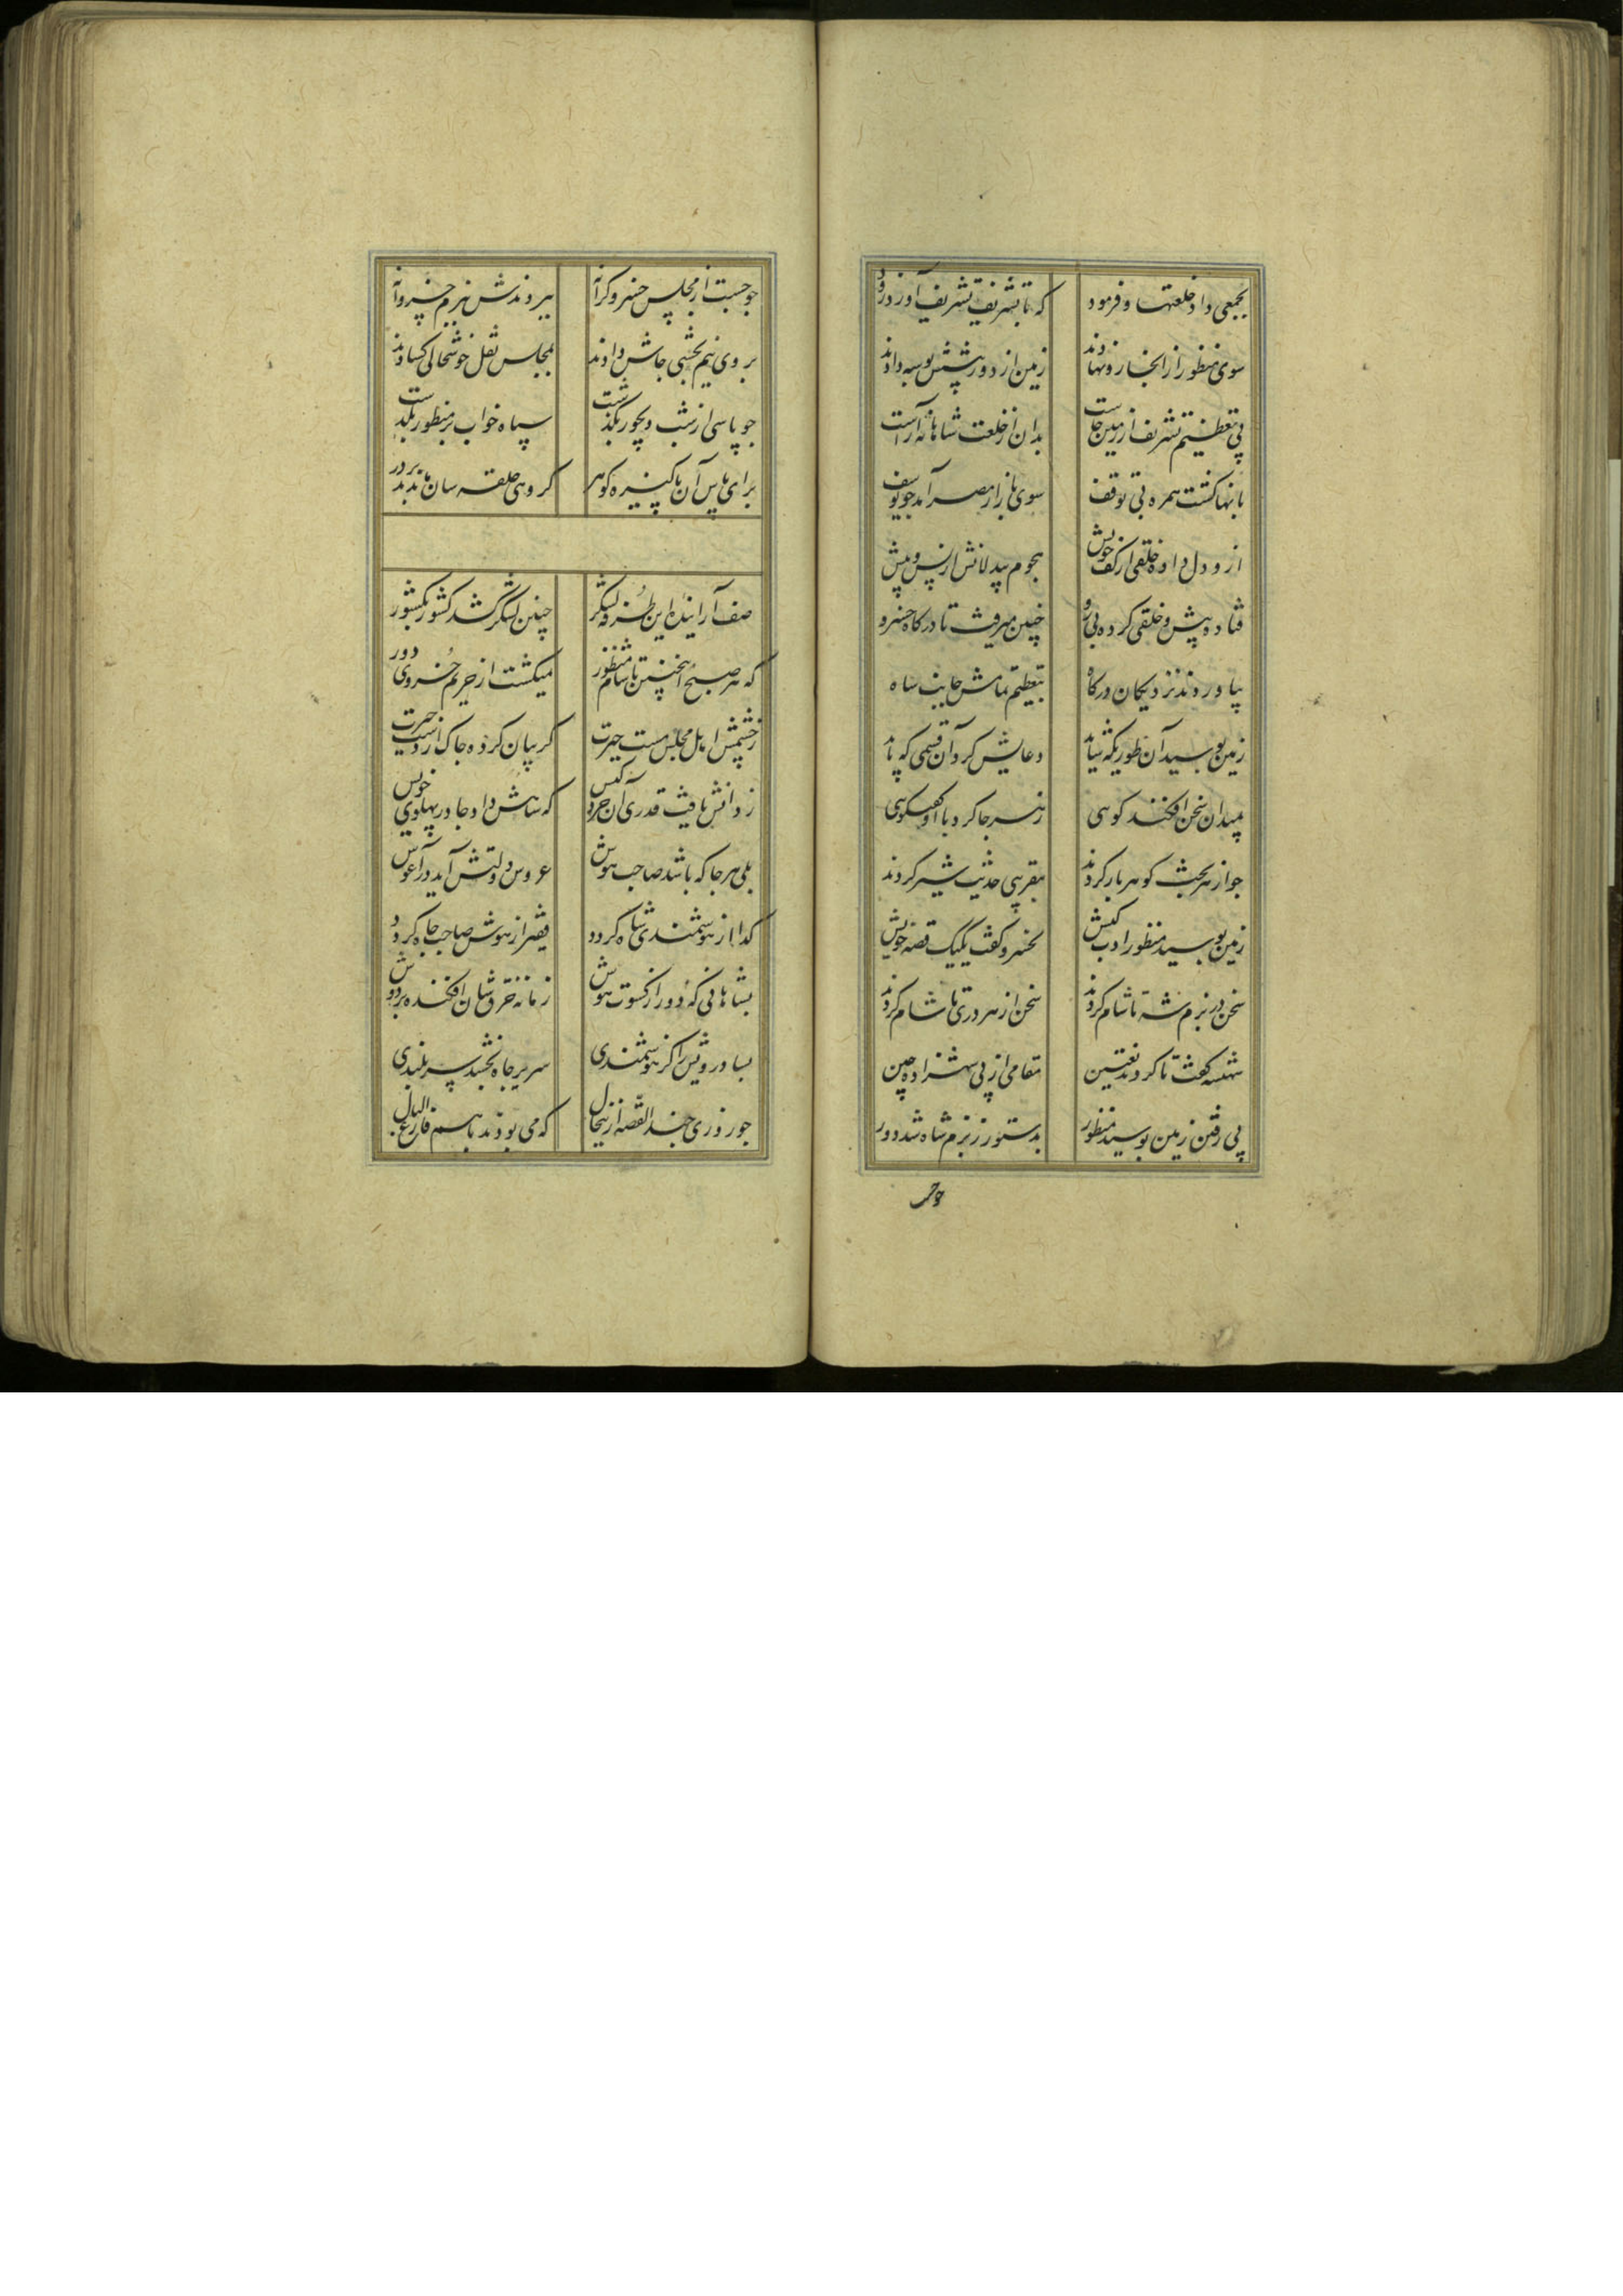 بجمعی داد خلعتها و فرمود
که تا تشریف تشریف آورد زود
سوی منظور از آنجا رو نهادند
زمین از دور پیشش بوسه دادند
پی تعظیم تشریف از زمین خاست
بدان از خلعت شاهانه آراست
بآنها گشت همره بی توقف
سوی بازار مصر آمد چو یوسف
ازو دل داده خلقی از کف خویش
هجوم بیدلانش از پس و پیش
فتاده پیش و خلقی کرده پی رو
چنین میرفت تا درگاه خسرو
بیاوردند نزدیکان درگاه
بتعظیم تمامش جانب شاه
زمین بوسید آن طوری که شاید
دعایش کرد آن قسمی که باید
بمیدان سخن افکند گویی
ز هر جا کرد با او گفتگویی
چو از هر بحث گوهر بار کردند
بتقریبی حدیث شیر کردند
زمین بوسید منظور ادب کیش
بخسرو گفت یک یک قصه خویش
سخن در بزم شه تا شام کردند
سخن از هر دری تا شام کردند
شهنشه گفت تا کردند تعیین
مقامی از پی شهزاده چین
پی رفتن زمین بوسید منظور
بدستور ز بزم شاه شد دور
چو جست
چو جست از مجلس خسرو کرانه
ببردندش ببزم خسروانه
بروی نیم تختی جاش دادند
بمجلس نقل خوشحالی گشادند
چو پاسی از شب دیجور بگذشت
سپاه خواب بر منظور بگذشت
برای پاس آن پاکیزه گوهر
گروهی حلقه سان ماندند بر در
صف آراینده این طرفه لشکر
چنین لشکر کشد کشور بکشور
که هر صبح اینچنین تا شام منظور
نمیگشت از حریم خسروی دور
ز چشمش اهل مجلس مست حیرت
گریبان کرده چاک از دست حیرت
ز دانش یافت قدری آن خرد کیش
که شاهش داد جا در پهلوی خویش
بلی هر جا که باشد صاحب هوش
عروس دولتش آید در آغوش
گدا از هوشمندی شاه گردد
فقیر از هوش صاحب جاه گردد
بشاهانی که دور از کسوت هوش
زمانه خرقه شان افکنده بر دوش
بسا درویش را کز هوشمندی
سریر جاه بخشد سربلندی
چو روزی چند القصه ازینحال
که می بودند با هم فارغ البال